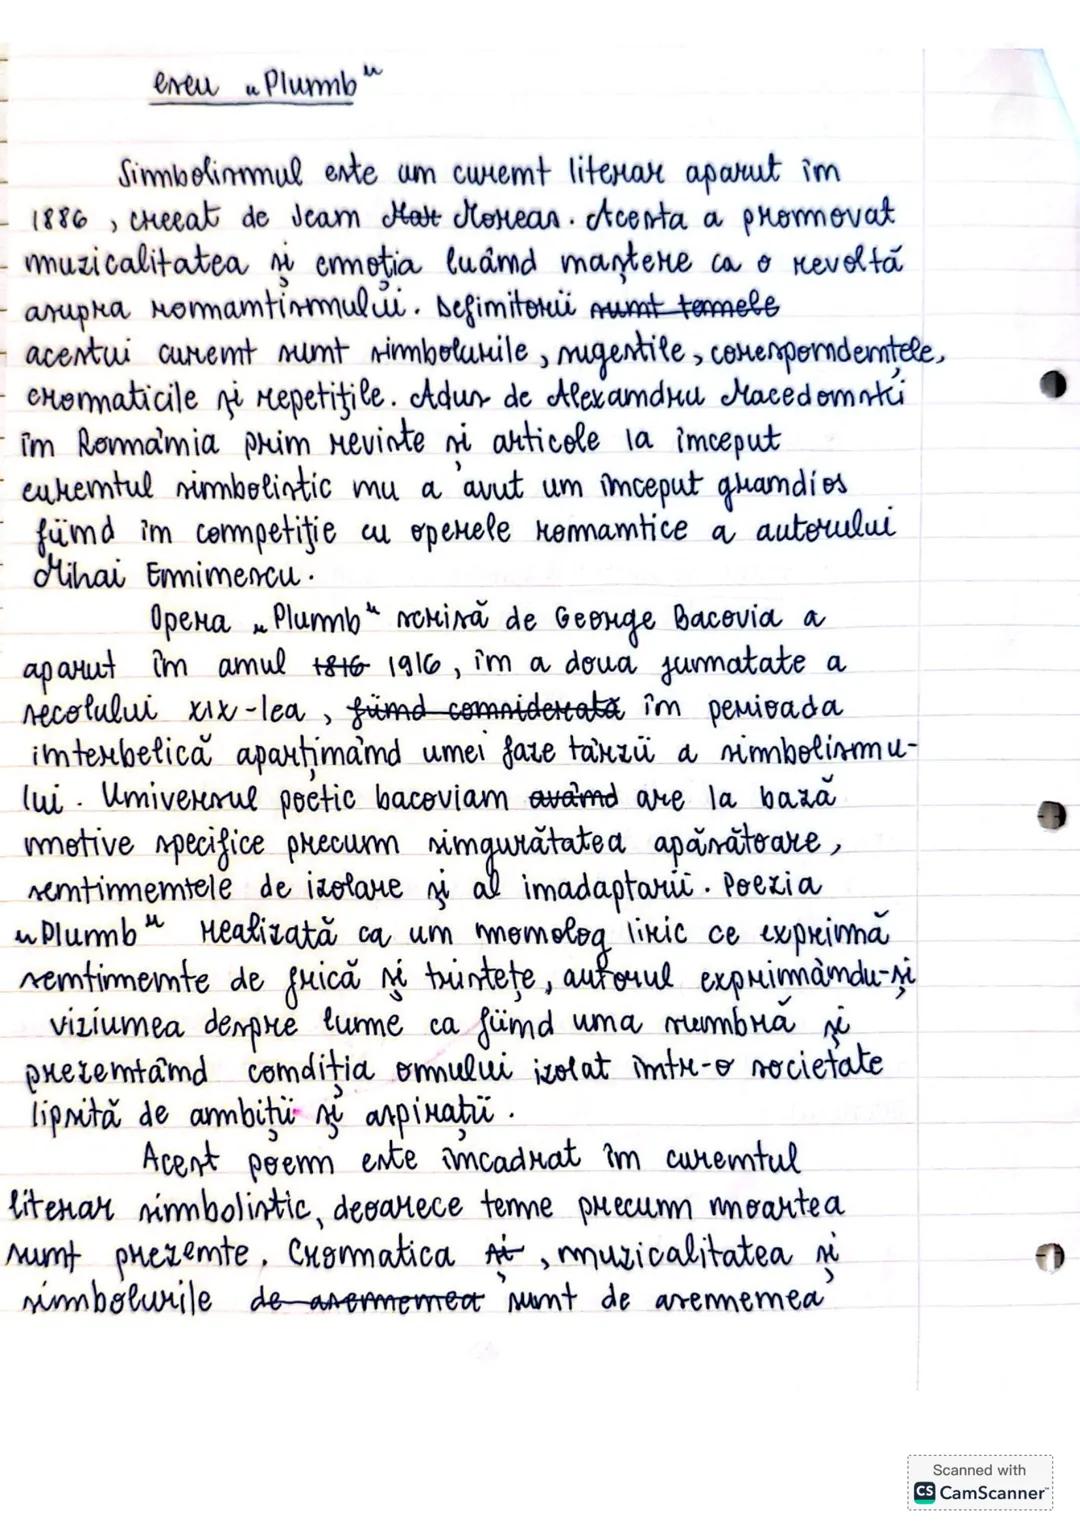 eseu „Plumb"
Simbolismul este un curent literar aparut în
1886, creeat de Jean Mat Moreas. Acesta a promovat
muzicalitatea și emoția luând naștere ca o revoltă
asupra romantismului. Definitorii sunt temele
acestui curent sunt simbolurile, sugestiile, corespondențele,
cromaticile și repetițile. Adus de Alexandru Macedonski
în România prin reviste și articole la început
curentul simbolistic nu a avut un început grandios
fiind în competiție cu operele romantice a autorului
Mihai Eminescu.
Opera „Plumb" scrisă de George Bacovia a
aparut în anul 1816 1916, în a doua jumatate a
secolului XIX-lea, fiind considerată în perioada
interbelică aparținând unei faze târzii a simbolismu-
lui. Universul poetic bacovian având are la bază
motive specifice precum singurătatea apăsătoare,
sentimentele de izolare și al inadaptarii. Poezia
„Plumb" realizată ca un monolog liric ce exprimă
sentimente de frică și tristețe, autorul exprimându-și
viziunea despre lume ca fiind una sumbră și
prezentând condiția omului izolat într-o societate
lipsită de ambiții și aspirații.
Acest poem este încadrat în curentul
literar simbolistic, deoarece teme precum moartea
sunt prezente. Cromatica și, muzicalitatea și
simbolurile de asemenea sunt de asemenea
Scanned with
CS CamScanner